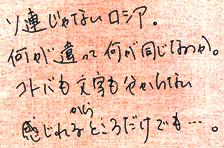 ソ連じゃないロシア。
何が違って何が同じなのか。
コトバも文字も分からない
から
感じれるところだけでも…。